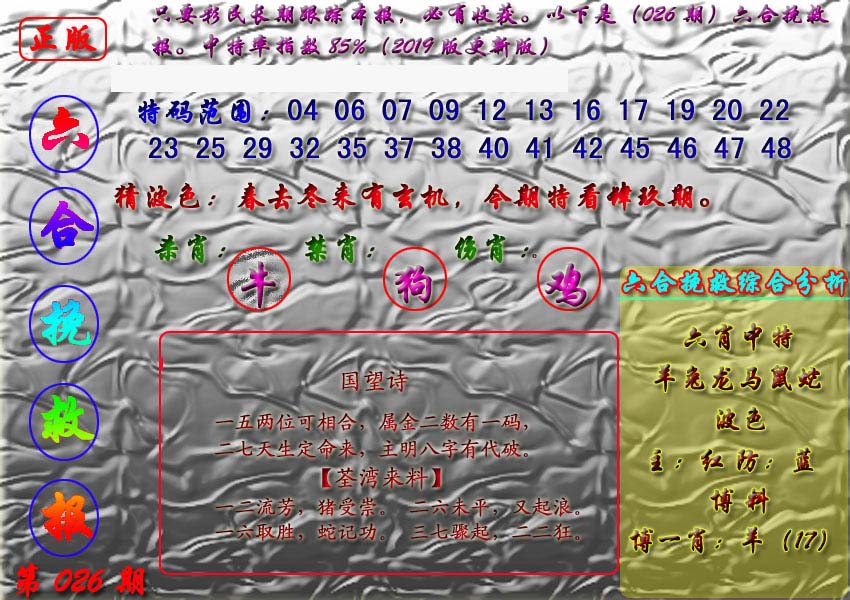 正版
只要彩民长期跟踪本报，必有收获。以下是（026期）六合挽救
报。中特率指数85%（2019版更新版）
六
合
挽
救
报
第026期
特码范围：04 06 07 09 12 13 16 17 19 20 22
23 25 29 32 35 37 38 40 41 42 45 46 47 48
猜波色：春去冬来有玄机，今期特看肆玖期。
杀肖：牛 禁肖：狗 伤肖：鸡。
国望诗
一五两位可相合，属金二数有一码，
二七天生定命来，主明八字有代破。
【荃湾来料】
一二流芳，猪受崇。 二六未平，又起浪。
一六取胜，蛇记功。 三七骤起，二二狂。
六合挽救综合分析
六肖中特
羊兔龙马鼠蛇
波色
主：红防：蓝
博料
博一肖：羊（17）